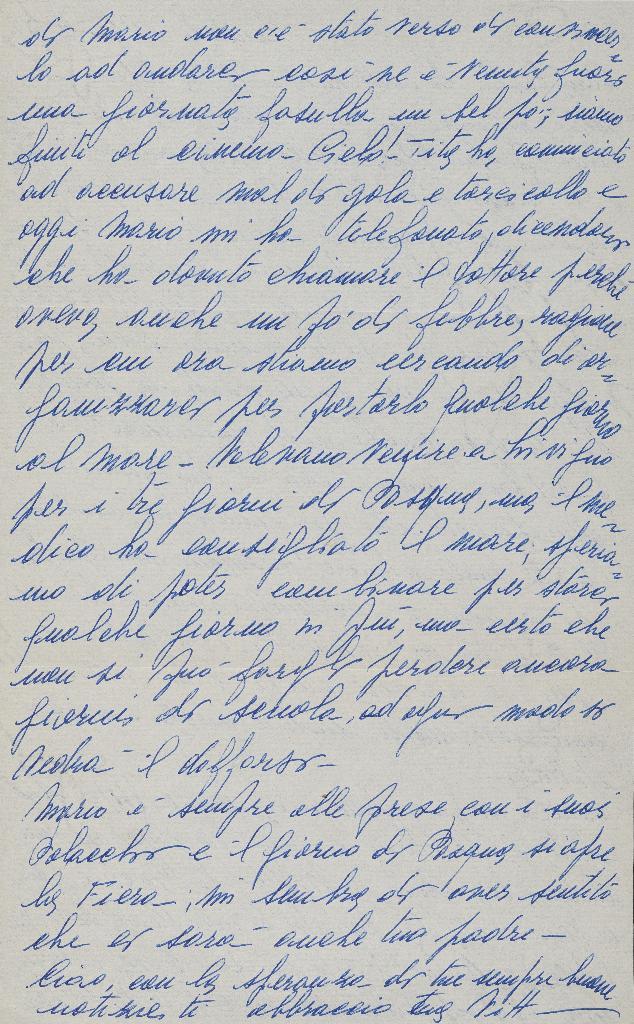 di Mario non c'è stato verso di convincer=
lo ad andarci così ne è venuta fuori
una giornata fasulla un bel po', siamo
finiti al cinema - Cielo! - Tita ha, cominciato
ad accusare mal di gola e torcicollo e
oggi Mario mi ha telefonato, dicendomi
che ha dovuto chiamare il dottore perchè
aveva, anche un po' di febbre, ragione
per cui ora stiamo cercando di or=
ganizzarci per portarlo qualche giorno
al mare - Volevano venire a Livigno
per i tre giorni di Pasqua, ma il me=
dico ha consigliato il mare, speria=
mo di poter combinare per starci
qualche giorno in più, ma certo che
non si può fargli perdere ancora
giorni di scuola, ad ogni modo si
vedrà il daffarsi -
Mario è sempre alle prese con i suoi
Polacchi e il giorno di Pasqua si apre
la Fiera - ; mi sembra di aver sentito
che ci sarà anche tuo padre -
Ciao, con la speranza di tue sempre buone
notizie ti abbraccio tua